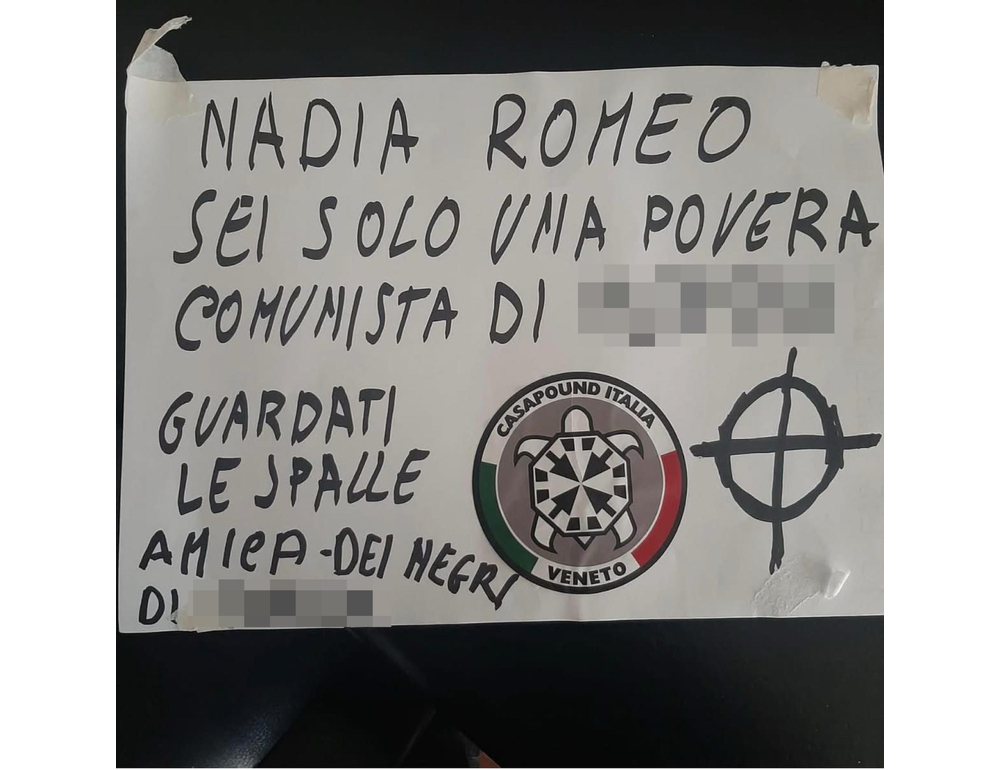 NADIA ROMEO
SEI SOLO UNA POVERA
COMUNISTA DI
GUARDATI
LE SPALLE
AMICA-DEI NEGRI
DI
CASAPOUND ITALIA
VENETO